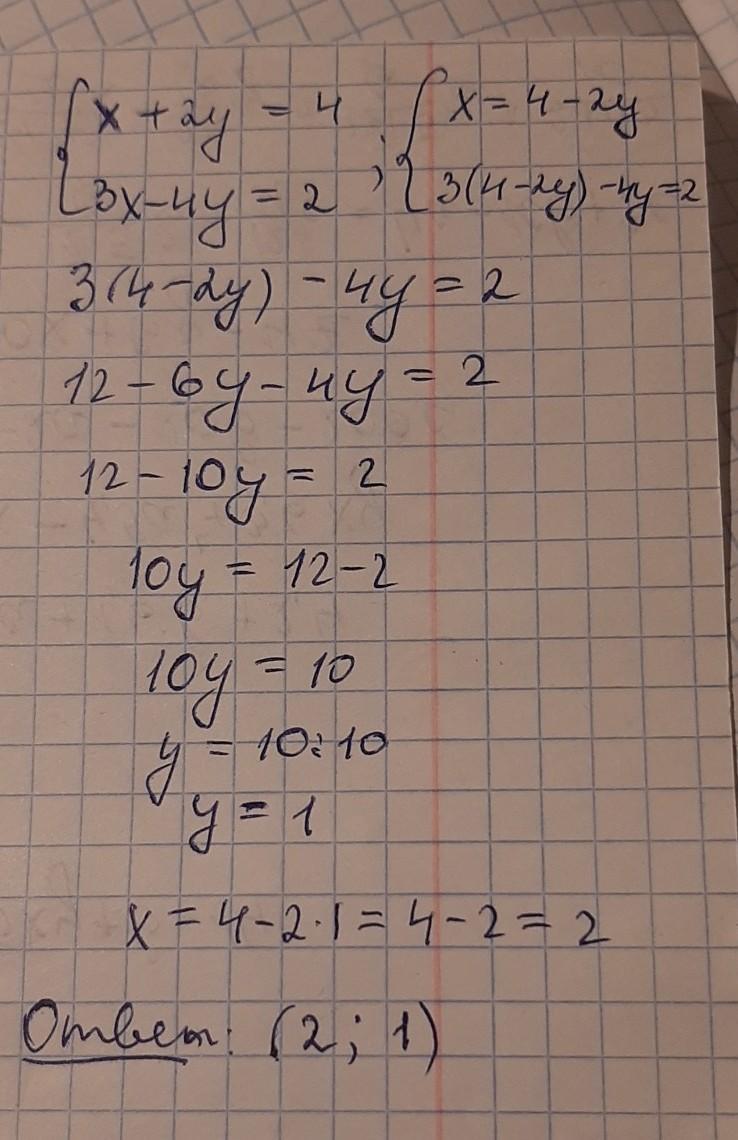 { x + 2y = 4 ; { x = 4 - 2y
3x - 4y = 2 3(4 - 2y) - 4y = 2
3(4 - 2y) - 4y = 2
12 - 6y - 4y = 2
12 - 10y = 2
10y = 12 - 2
10y = 10
y = 10:10
y = 1
x = 4 - 2·1 = 4 - 2 = 2
Ответ: (2; 1)